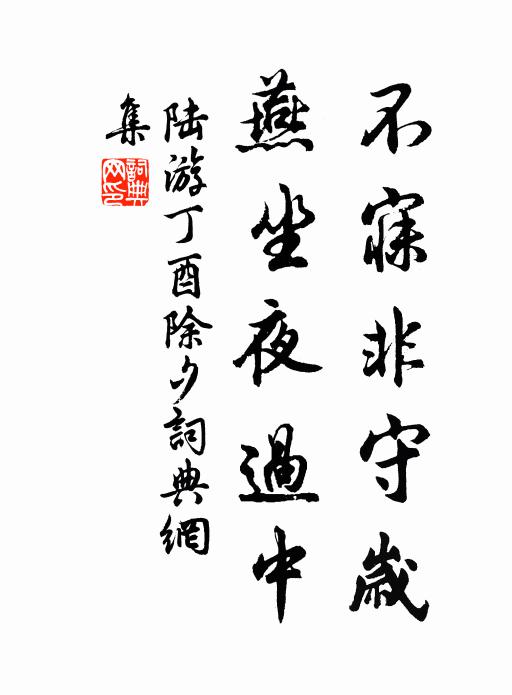 不寐非守歲
燕坐夜過中
陆游丁酉除夕詞典網
集
詞典網印